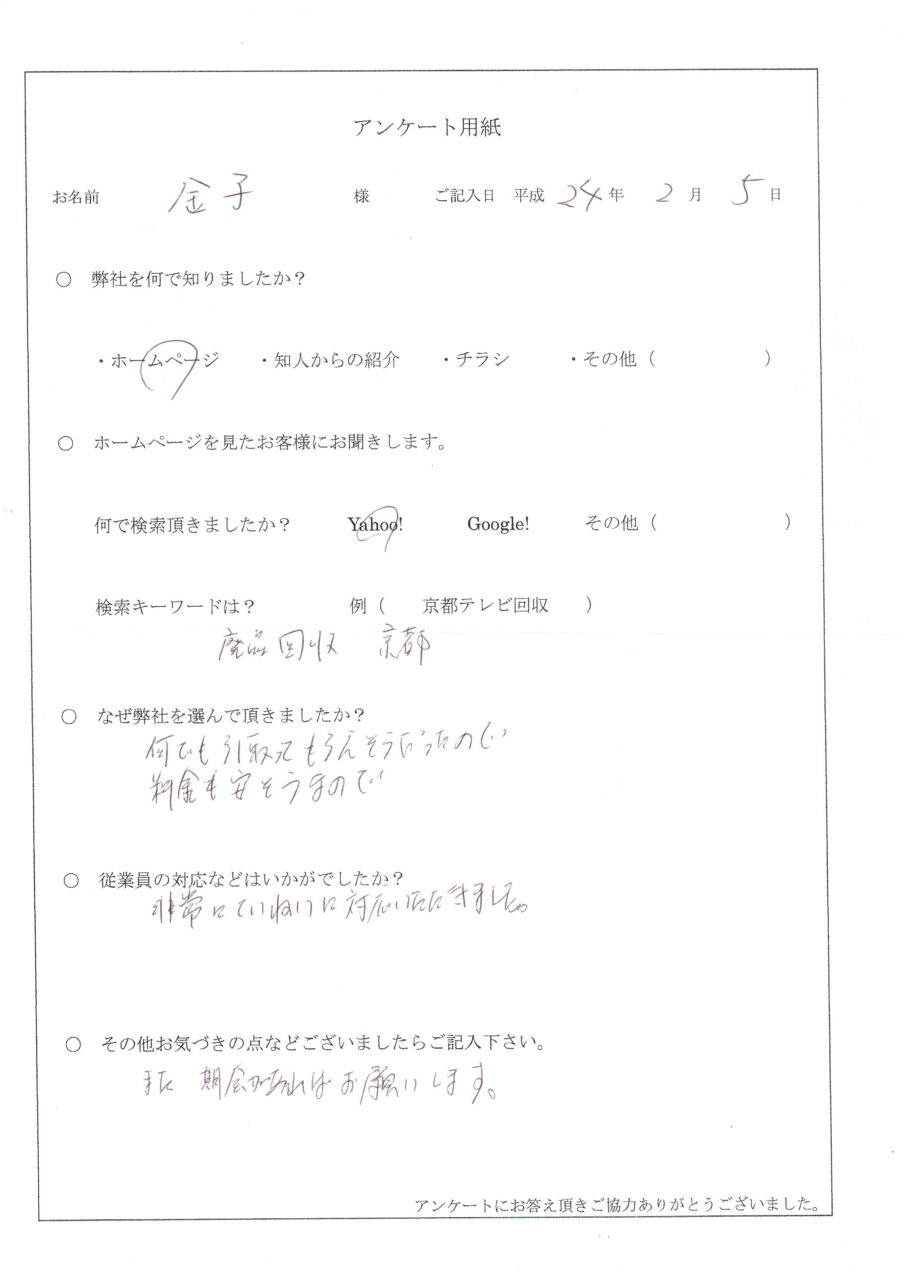 アンケート用紙
お名前 金子 様 ご記入日 平成 24 年 2 月 5 日
○ 弊社を何で知りましたか？
・ホームページ ・知人からの紹介 ・チラシ ・その他（ ）
○ ホームページを見たお客様にお聞きします。
何で検索頂きましたか？ Yahoo! Google! その他（ ）
検索キーワードは？ 例（ 京都テレビ回収 ）
廃品回収 京都
○ なぜ弊社を選んで頂きましたか？
何でも引取ってもらえそうだったので
料金も安そうなので
○ 従業員の対応などはいかがでしたか？
非常にていねいに対応いただきました。
○ その他お気づきの点などございましたらご記入下さい。
また 期会があればお願いします。
アンケートにお答え頂きご協力ありがとうございました。